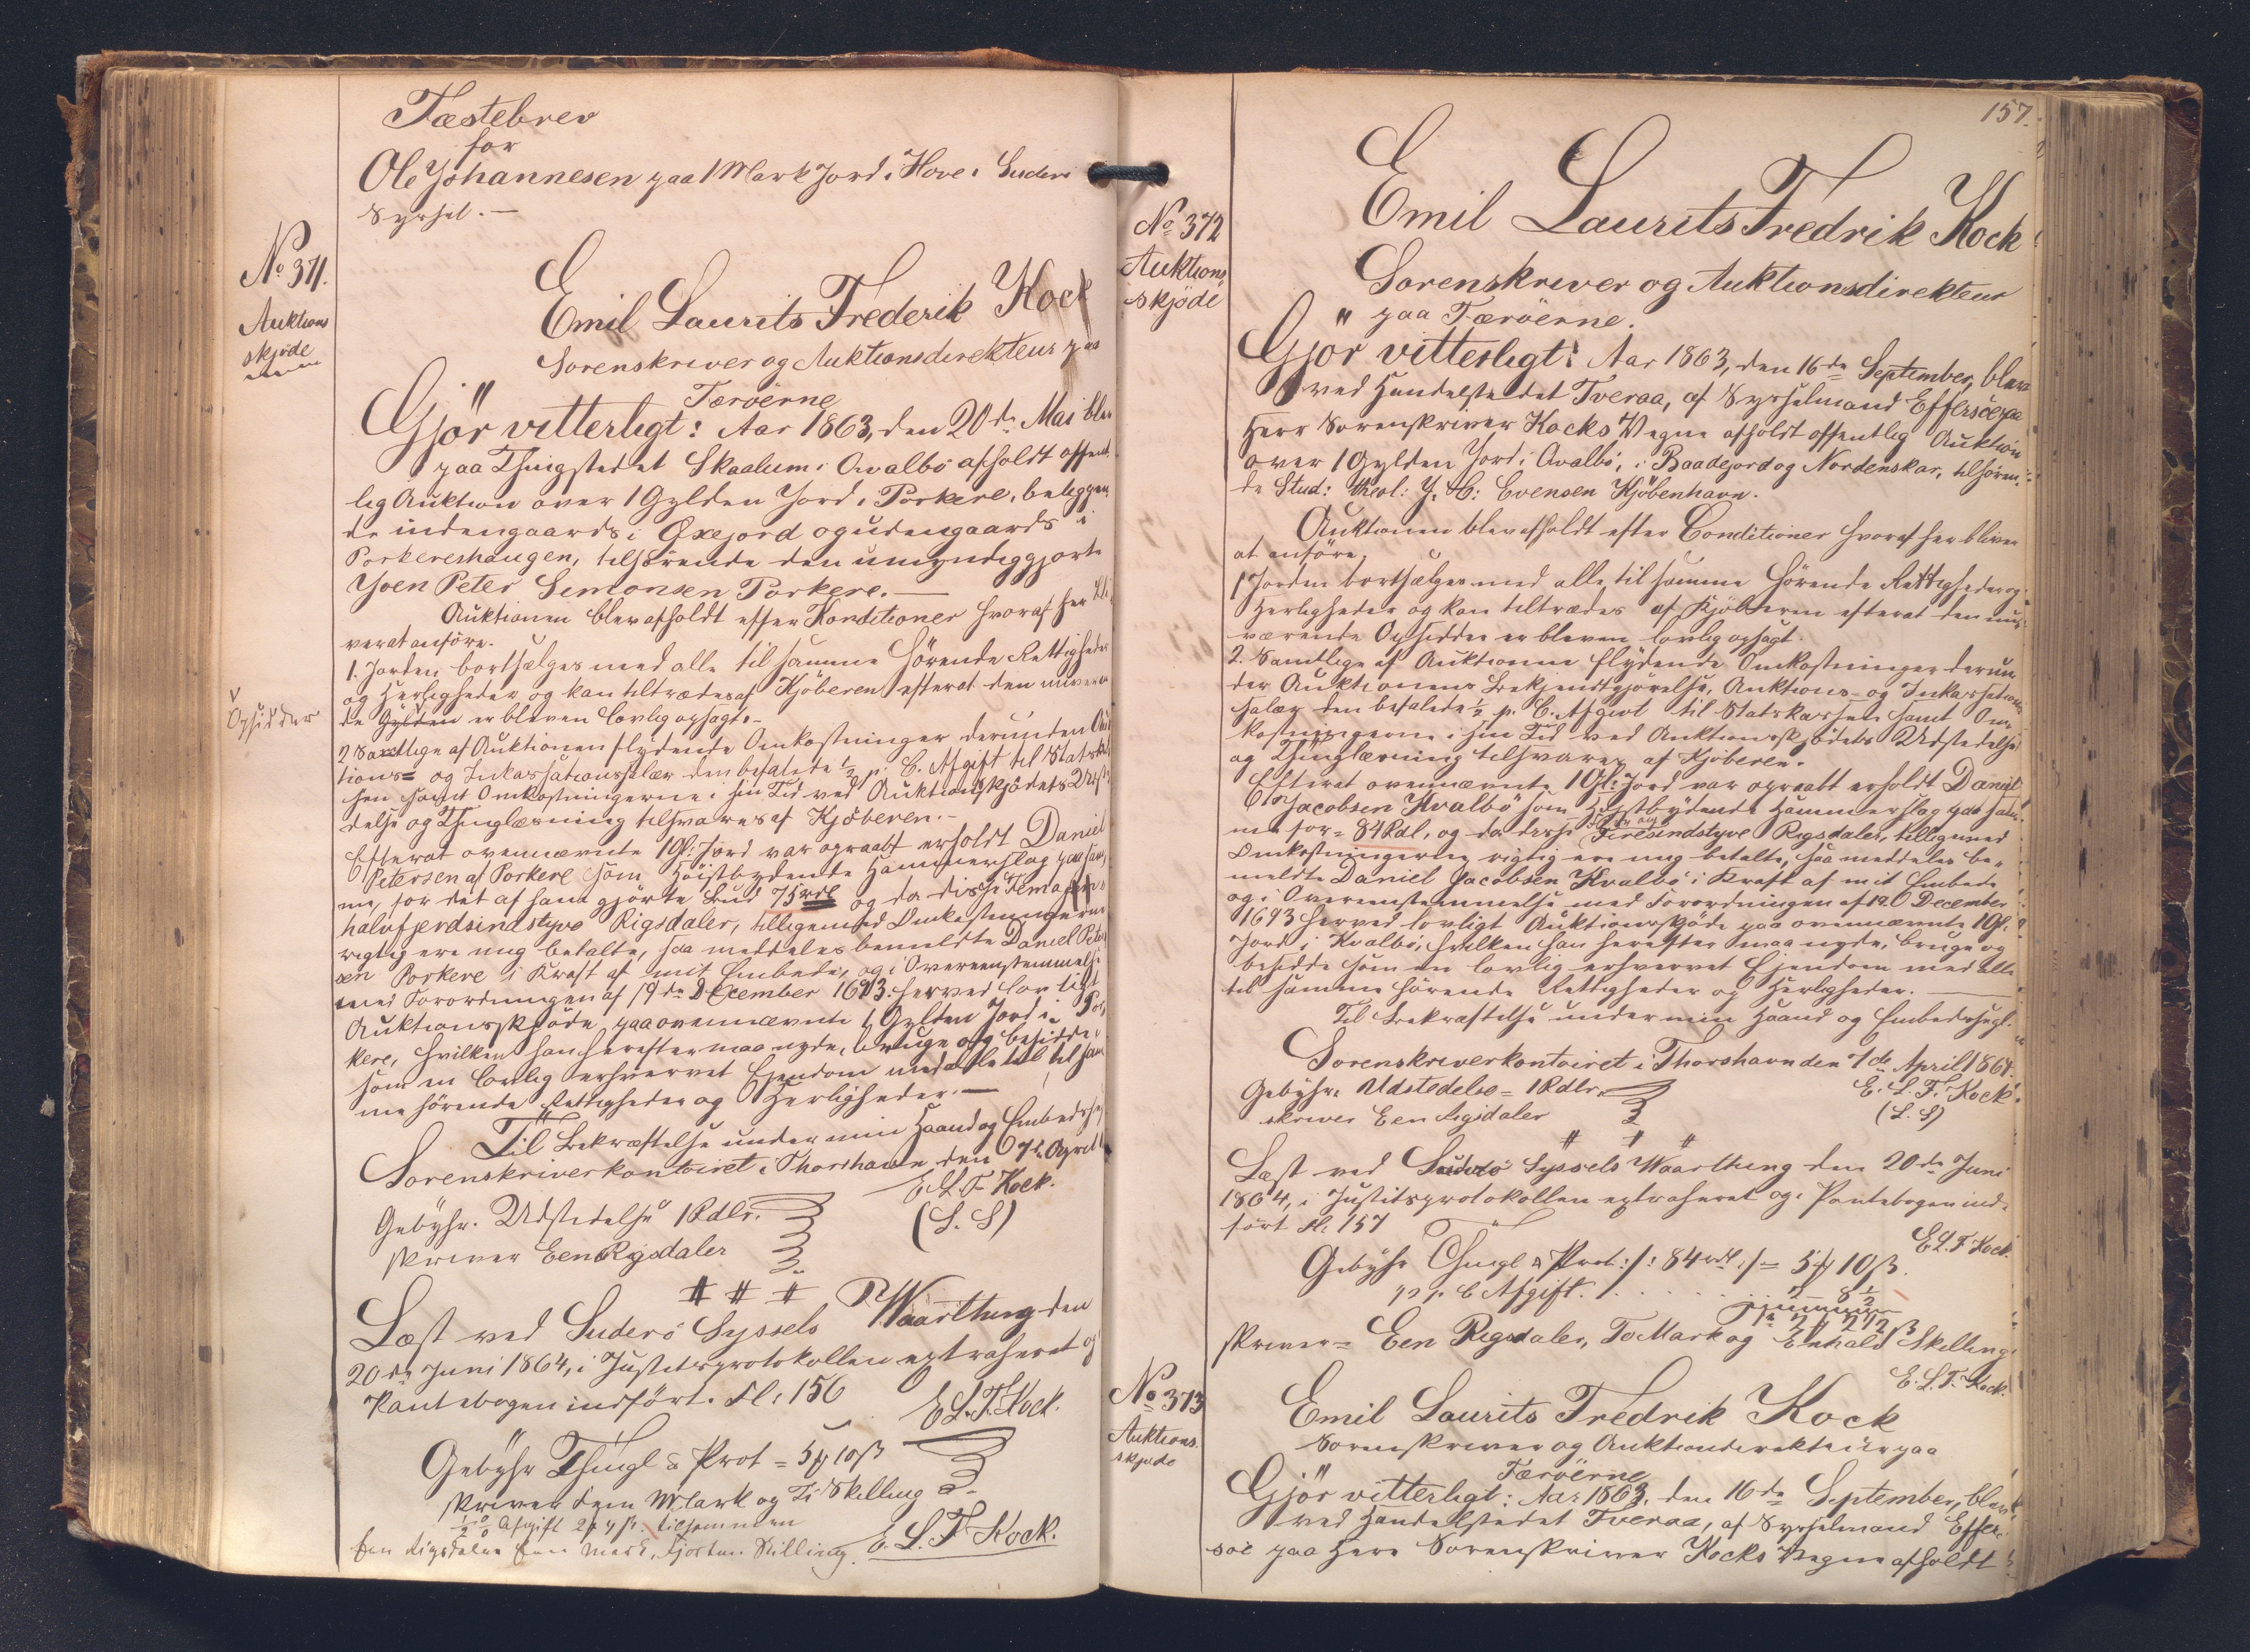 Fæstebrev
for
Ole Johannesen paa 1 Mark Jord i Hove i Suderø
Syssel. —
No 371.
Auktions
skjøde
Emil Laurits Frederik Kock
Sorenskriver og Auktionsdirekteur paa
Færøerne
Gjör vitterligt: Aar 1863, den 20de Mai blev
paa Thingstedet Skaalum i Qvalbø afholdt offent-
lig Auktion over 1 Gylden Jord i Porkere, beliggen
de indengaards i Oxejord og udengaards i
Porkereshaugen, tilhörende den umyndiggjorte
Joen Peter Simonsen Porkere. —
Auktionen blev afholdt efter Konditioner hvoraf her bli
ver at anföre.
1. Jorden bortsælges med alle til samme hörende Rettigheder
og Herligheder og kan tiltrædes af Kjöberen efterat den nuværen
de Gylden er bleven lovlig opsagt. —
Opsidder
2 Samtlige af Auktionen flydende Omkostninger derunder Auk
tions= og Inkassationssalær den befalede ½ p. C. Afgift til Statskas
sen samt Omkostningerne i sin Tid ved Auktionsskjödets Udste
delse og Thinglæsning tilsvares af Kjöberen. —
Efterat ovennævnte 1 Gl: Jord var opraabt erholdt Daniel
Petersen af Porkere som Höistbydende Hammerslag paa sam
me, for det af ham gjorte Bud 75 rdl og da disse Fem og
halvfjerdsindstyve Rigsdaler, tilligemed Omkostningerne
rigtig ere mig betalte, saa meddeles bemeldte Daniel Peter
sen Porkere i Kraft af mit Embede, og i Overeensstemmelse
med Forordningen af 19de December 1693. herved lovligt
Auktionsskjöde paa ovennævnte 1 Gylden Jord i Por
kere, hvilken han herefter maa nyde, bruge og besidde
som en lovlig erhvervet Ejendom med alle til sam
me hörende Rettigheder og Herligheder. —
Til Bekræftelse under min Haand og Embedsseg
Sorenskriverkontoiret i Thorshavn den 7de April
E. L. F. Kock.
(L. S)
Gebyhr. Udstedelse 1 Rdlr.
skriver Een Rigsdaler
# # #
Læst ved Suderö Syssels Vaarthing den
20de Juni 1864, i Justitsprotokollen extraheret og
Pantebogen indfört. Fl: 156
E. L. F. Kock.
Gebyhr Thingl & Prot = 5 ₰ 10 ß
skriver Fem Mark og Ti Skilling
½ % Afgift 2 ₰ 4 ß. tilsammen
Een Rigsdaler Een Mark, Fjorten Skilling. E. L. F. Kock.
157.
No 372
Auktions
skjöde
Emil Laurits Fredrik Kock
Sorenskriver og Auktionsdirekteur
paa Færöerne.
Gjör vitterligt: Aar 1863, den 16de September, blev
ved Handelstedet Tveraa, af Sysselmand Effersöe paa
Herr Sorenskriver Kocks Vegne afholdt offentlig Auktion
over 1 Gylden Jord i Qvalbö, i Baadejord og Nordenskar, tilhören,
de Stud: theol: J. C: Evensen Kjöbenhavn.
Auktionen blev afholdt efter Conditioner hvoraf her bliver
at anföre.
1 Jorden bortsælges med alle til samme hörende Rettigheder og
Herligheder og kan tiltrædes af Kjöberen efterat den nu
værende Opsidder er bleven lovlig opsagt.
2. Samtlige af Auktionen flydende Omkostninger derun
der Auktionens Bekjendtgjörelse, Auktions- og Inkassations
salær den befalede ½ p. C. Afgivt til Statskassen samt Om
kostningerne i sin Tid ved Auktionsskjödets Udstedelse
og Thinglæsning tilsvares af Kjöberen.
Efterat ovennævnte 1 Gl: Jord var opraabt erholdt Daniel
Jacobsen Kvalbö som Höistbydende Hammerslag paa sam
me for = 84 Rdl, og da disse Fire og Firesindstyve Rigsdaler, tilligemed
Omkostningerne rigtig ere mig betalte, saa meddeles be„
meldte Daniel Jacobsen Kvalbö i Kraft af mit Embede
og i Overeensstemmelse med Forordningen af 19. December
1693 herved lovligt Auktionsskjöde paa ovennævnte 1 Gl.
Jord i Kvalbö, hvilken han herefter maa nyde, bruge og
besidde som en lovlig erhvervet Ejendom med alle
til samme hörende Rettigheder og Herligheder. —
Til Bekræftelse under min Haand og Embedssegl.
Sorenskriverkontoiret i Thorshavn den 7de April 1864.
E. L. F. Kock.
(L. S)
Gebyhr. Udstedelse = 1 Rdlr.
skriver Een Rigsdaler
# # #
Læst ved Suderö Syssels Vaarthing den 20de Juni
1864, i Justitsprotokollen extraheret og i Pantebogen ind-
fört Fl. 157
E. L. F. Kock.
Gebyhr Thingl & Prot: /: 84 rdl :/ = 5 ₰ 10 ß.
½ p. C Afgift. . . . . . . 2 - 8½
skriver = Een Rigsdaler, To Mark og Enhalv Skilling.
E. L. F. Kock.
No 373
Auktions.
skjøde
Emil Laurits Fredrik Kock
Sorenskriver og Auktionsdirekteur paa
Færöerne
Gjör vitterligt: Aar 1863, den 16de September, blev
ved Handelstedet Tveraa, af Sysselmand Effer„
söe paa Herr Sorenskriver Kocks Vegne afholdt